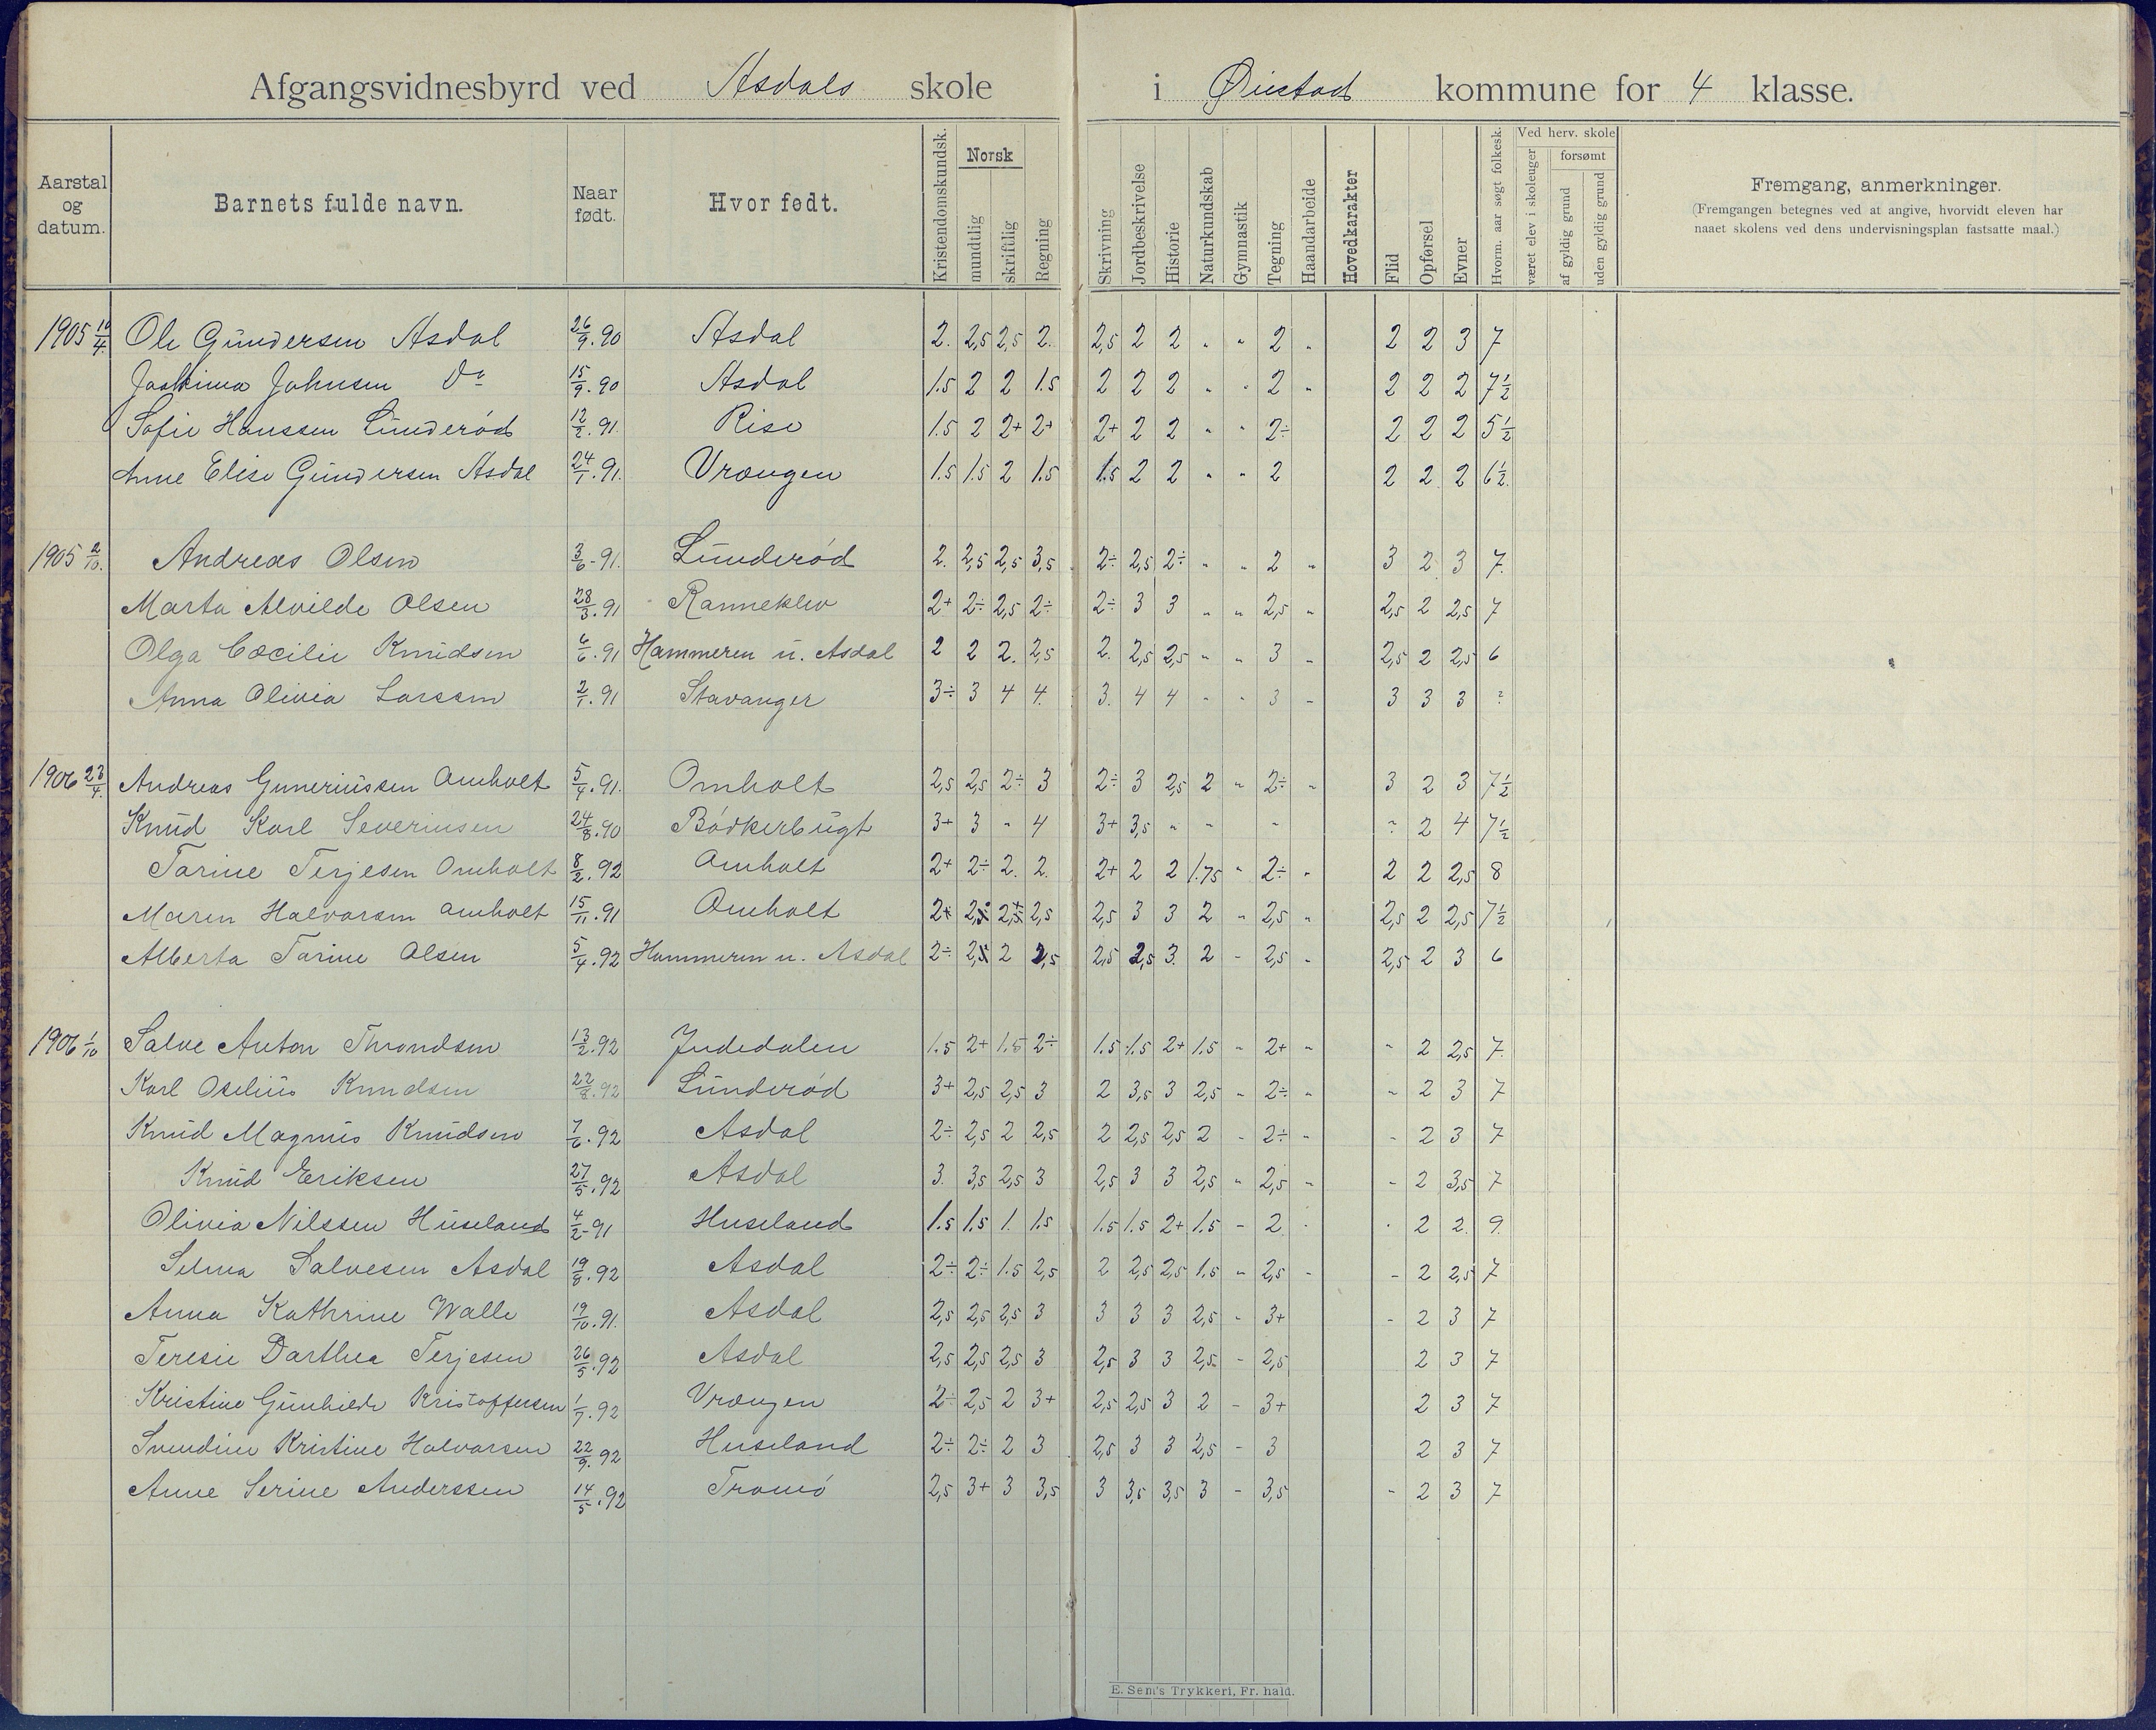 Afgangsvidnesbyrd ved Asdals skole i Øiestad kommune for 4 klasse.
Aarstal og datum. Barnets fulde navn. Naar født. Hvor født. Kristendomskundsk. Norsk mundtlig skriftlig Regning Skrivning Jordbeskrivelse Historie Naturkundskab Gymnastik Tegning Haandarbeide Hovedkarakter Flid Opførsel Evner Hvorm. aar søgt folkesk. Ved herv. skole været elev i skoleuger forsømt af gyldig grund uden gyldig grund Fremgang, anmerkninger.
(Fremgangen betegnes ved at angive, hvorvidt eleven har
naaet skolens ved dens undervisningsplan fastsatte maal.)
1905 10/4. Ole Gundersen Asdal 26/9.90 Asdal 2. 2,5 2,5 2. 2,5 2 2 " " 2 " 2 2 3 7
Joakima Johnsen Do 15/9.90 Asdal 1.5 2 2 1.5 2 2 2 " " 2 " 2 2 2 7½
Sofie Hanssen Lunderød 12/2.91. Rise 1.5 2 2+ 2+ 2+ 2 2 " " 2÷ 2 2 2 5½
Anne Elise Gundersen Asdal 24/1.91. Vrængen 1.5 1.5 2 1.5 1.5 2 2 " " 2 2 2 2 6½
1905 2/10. Andreas Olsen 3/6-91. Lunderød 2. 2,5 2,5 3,5 2÷ 2,5 2÷ " " 2 " 3 2 3 7.
Marta Alvilde Olsen 28/3.91 Ranneklev 2+ 2÷ 2,5 2÷ 2÷ 3 3 " " 2,5 " 2,5 2 2,5 7
Olga Cæcilie Knudsen 6/6.91 Hammeren u. Asdal 2 2 2. 2,5 2. 2,5 2,5 " " 3 " 2,5 2 2,5 6
Anna Olivia Larssen 2/1.91 Stavanger 3÷ 3 4 4. 3. 4 4 - - 3 - 3 3 3 ?
1906 23/4. Andreas Guneriussen Omholt 5/4.91. Omholt 2,5 2,5 2÷ 3 2÷ 3 2,5 2 " 2÷ " 3 2 3 7½
Knud Karl Severinsen 24/8.90 Bødkerbugt 3+ 3 - 4 3+ 3,5 " - - - 2 4 7½
Tarine Terjesen Omholt 8/2.92 Omholt 2+ 2÷ 2. 2. 2+ 2 2 1.75 " 2÷ " 2 2 2,5 8
Maren Halvorsen Omholt 15/11.91 Omholt 2,5 2,5 3 3 2 " 2,5 " 2,5 2 2,5 7½
Alberta Tarine Olsen 5/4.92 Hammeren u. Asdal 2÷ 2 2,5 2,5 2,5 3. 2 - 2,5 - 2,5 2 3 6
1906 1/10 Salve Anton Throndsen 13/2.92 Judedalen 1.5 2+ 1.5 2÷ 1.5 1.5 2+ 1.5 - 2+ - - 2 2,5 7.
Karl Oselius Knudsen 22/8.92 Lunderød 3+ 2,5 2,5 3 2 3,5 3 2,5 - 2÷ - - 2 3 7
Knud Magnus Knudsen 7/6.92 Asdal 2÷ 2,5 2 2,5 2 2,5 2,5 2 - 2÷ - - 2 3 7
Knud Eriksen 27/5.92 Asdal 3. 3,5 2,5 3 2,5 3 3 2,5 " 2,5 - - 2 3,5 7
Olivia Nilssen Huseland 4/2-91 Huseland 1.5 1.5 1. 1.5 1.5 1.5 2+ 1.5 - 2 - - 2 2. 9.
Selma Salvesen Asdal 19/8.92 Asdal 2÷ 2÷ 1.5 2,5 2 2,5 2,5 1.5 - 2,5 - - 2 2,5 7
Anna Kathrine Walle 19/10.91. Asdal 2,5 2,5 2,5 3 3 3 3 2,5 - 3+ - 2 3 7
Teresie Darthea Terjesen 26/5.92 Asdal 2,5 2,5 2,5 3 2,5 3 3 2,5 - 2,5 2 3 7
Kristine Gunhilde Kristoffersen 1/7.92 Vrængen 2÷ 2,5 2 3+ 2,5 2,5 3 2 - 3+ 2 3 7
Svendine Kristine Halvorsen 22/9.92 Huseland 2÷ 2÷ 2 3 2,5 3 3 2,5 - 3 2 3 7
Anne Serine Anderssen 14/5.92 Tromø 2,5 3+ 3 3,5 3 3,5 3,5 3 - 3,5 - 2 3 7
E. Sem's Trykkeri, Fr. hald.